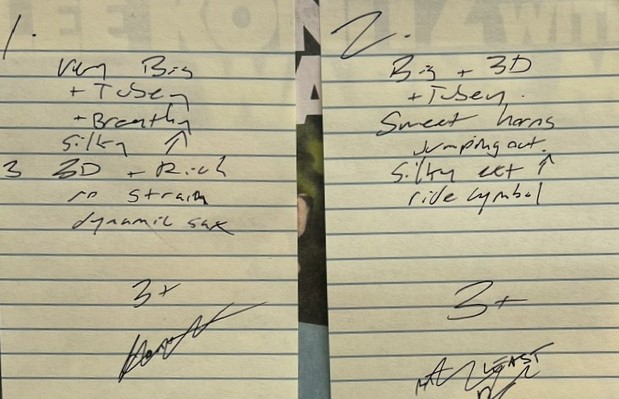 1.
Very Big
+ Tubey
+ Breathy
Silky ↑
3 3D + Rich
no strain
dynamic sax
3+
2.
Big + 3D
+ Tubey.
Sweet horns
jumping out.
Silky ext ↑
ride cymbol
3+
At LEAST